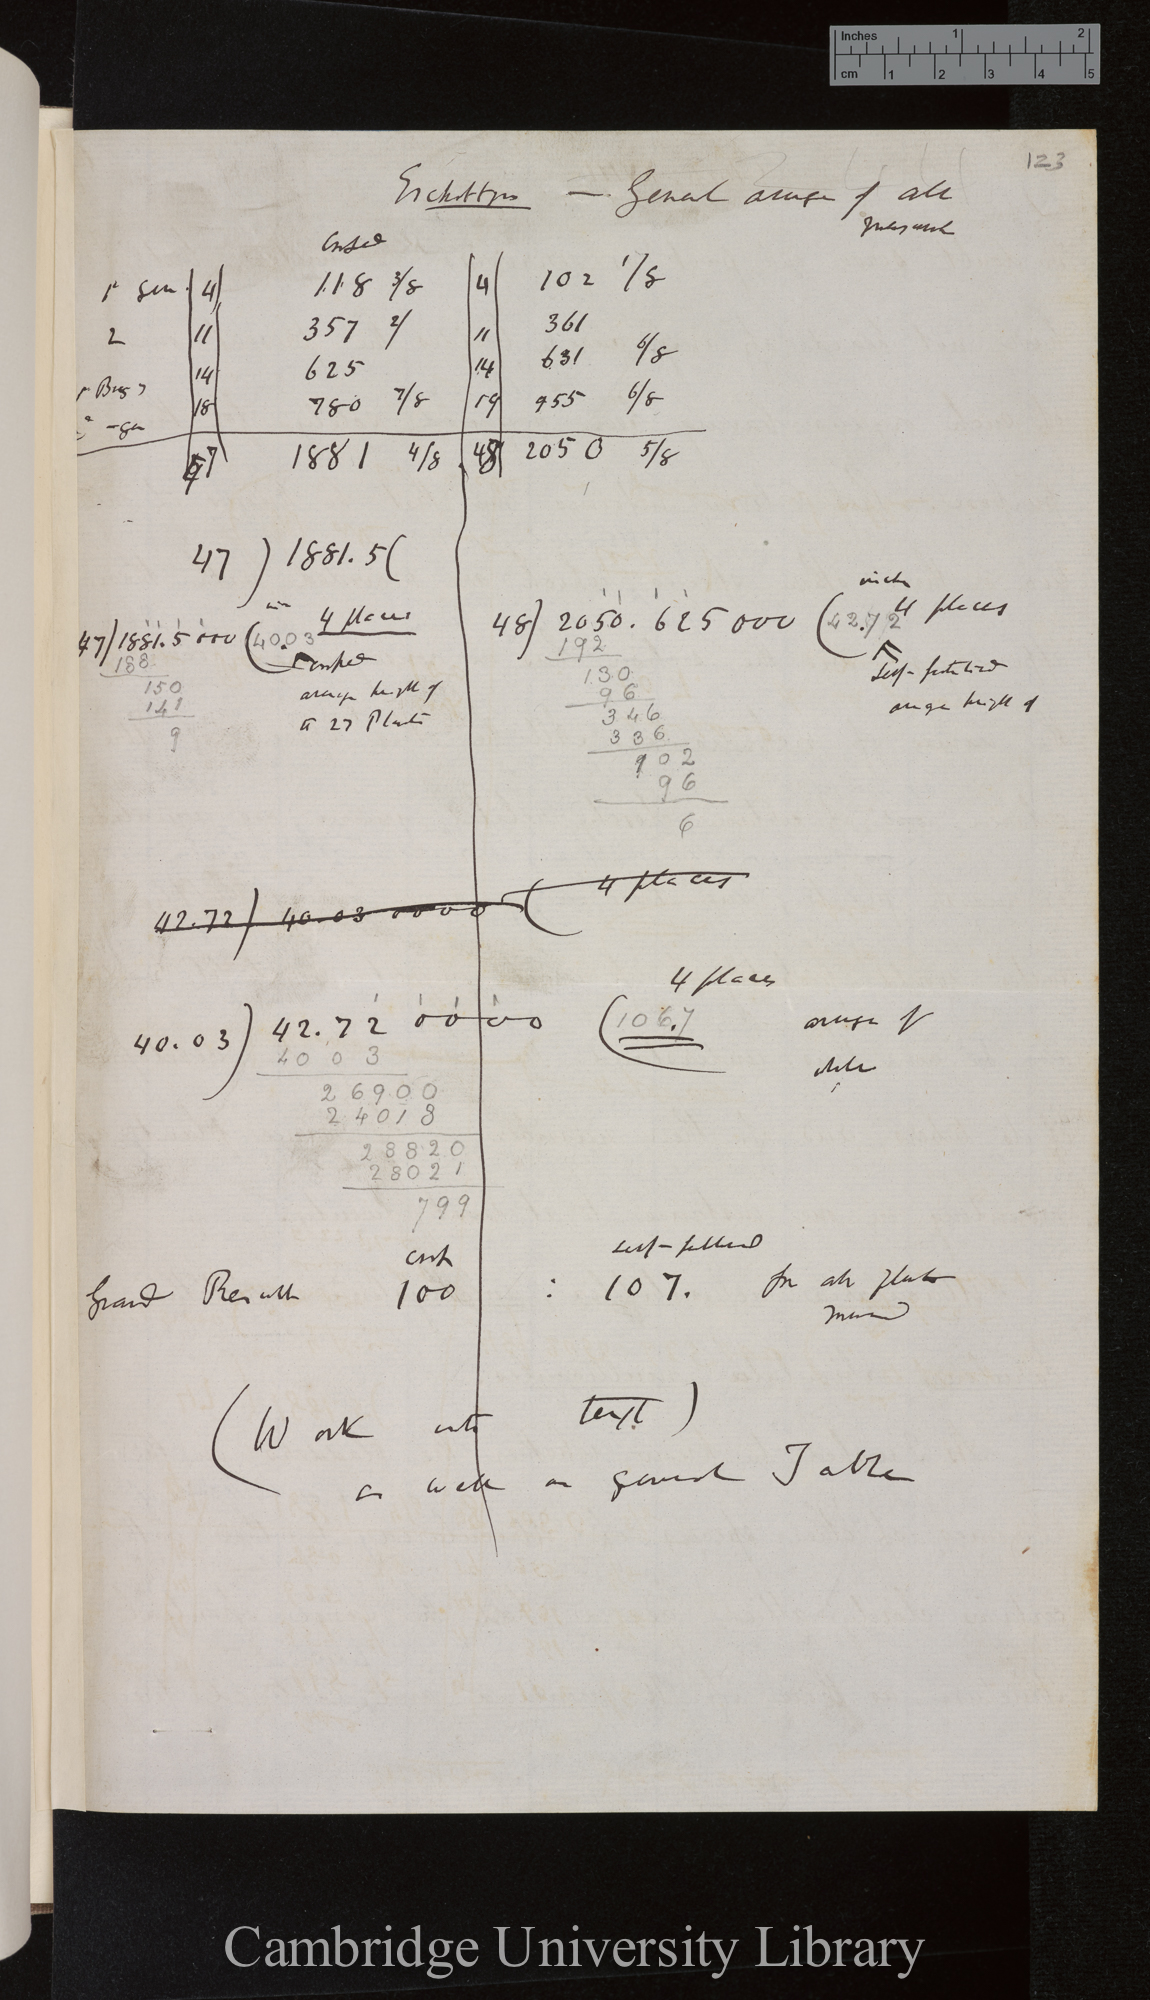 Inches 1 2
cm 1 2 3 4 5
123
Escholtzia — General average of all
measured
Crossed
1st gen. 4 118 3/8 4 102 1/8
2 11 357 2/ 11 361
14 625 14 631 6/8
18 780 7/8 19 955 6/8
47 1881 4/8 48 2050 5/8
47 ) 1881.5 (
47) 1881.5 000 ( 40.03 4 places
188
150
141
9
crossed
average height of
27 Plants
48) 2050.625000 ( 42.72 4 places
inches
192
130
96
346
336
102
96
6
Self-fertilised
average height of
42.72 ) 40.03 0000 ( 4 places
4 places
40.03 ) 42.72 00000 ( 106.7 average of
4003
whole
26900
24018
28820
28021
799
cross self-fertilised
Grand Result 100 : 107. for all plants
measured
(Work into text)
as well as general Table
Cambridge University Library